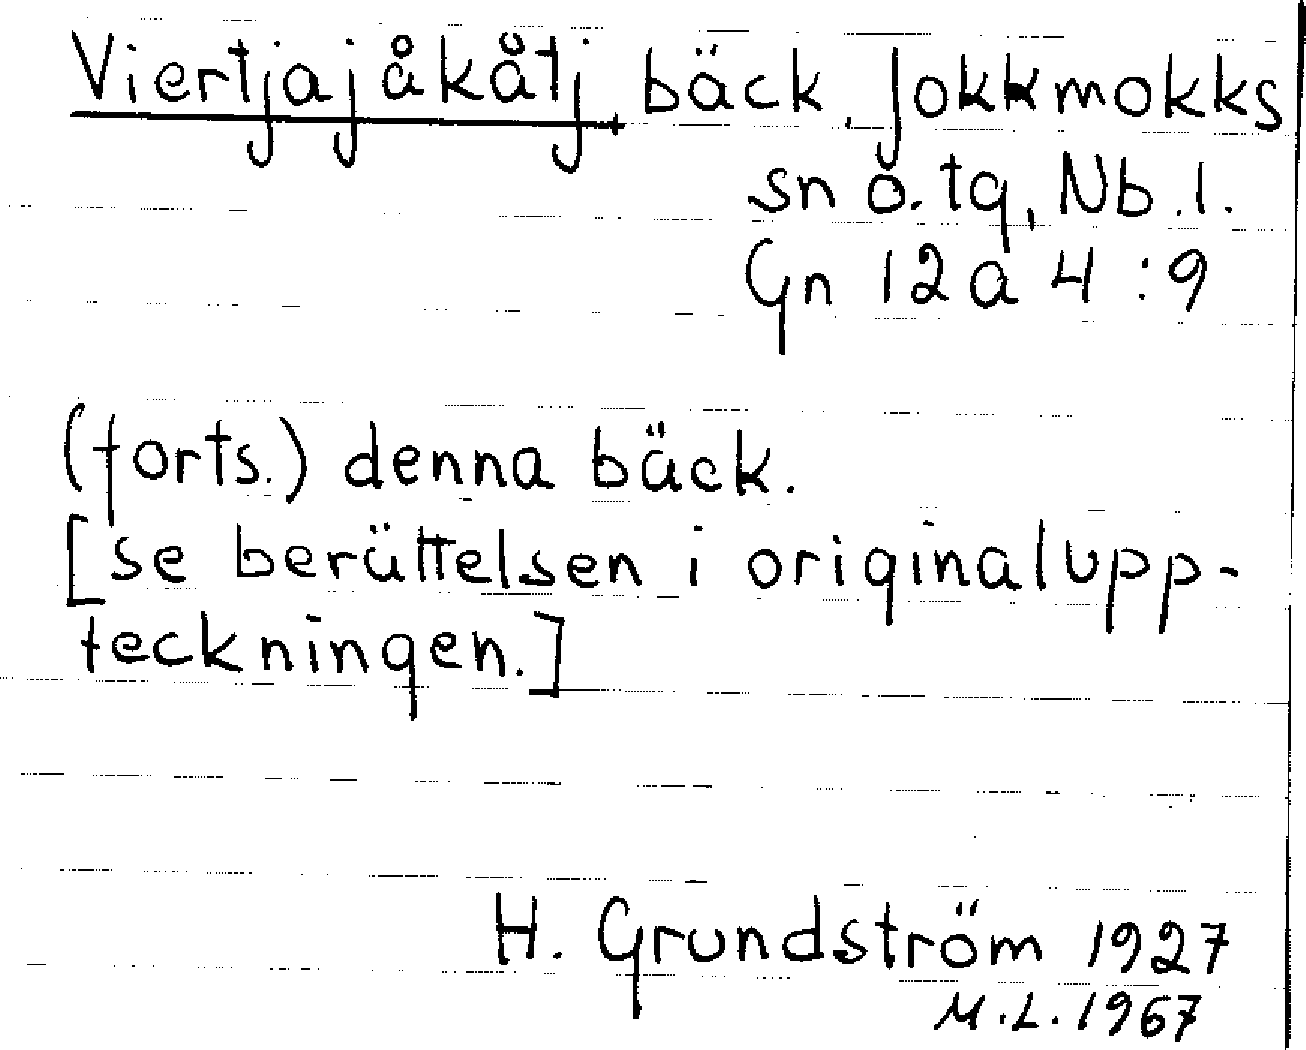 Viertjajåkåtj bäck, Jokkmokks
sn o. tg, Nb. l.
Gn 12 a 4 : 9
(forts.) denna bäck.
[se berättelsen i originalupp-
teckningen.]
H. Grundström 1927
M.L. 1967